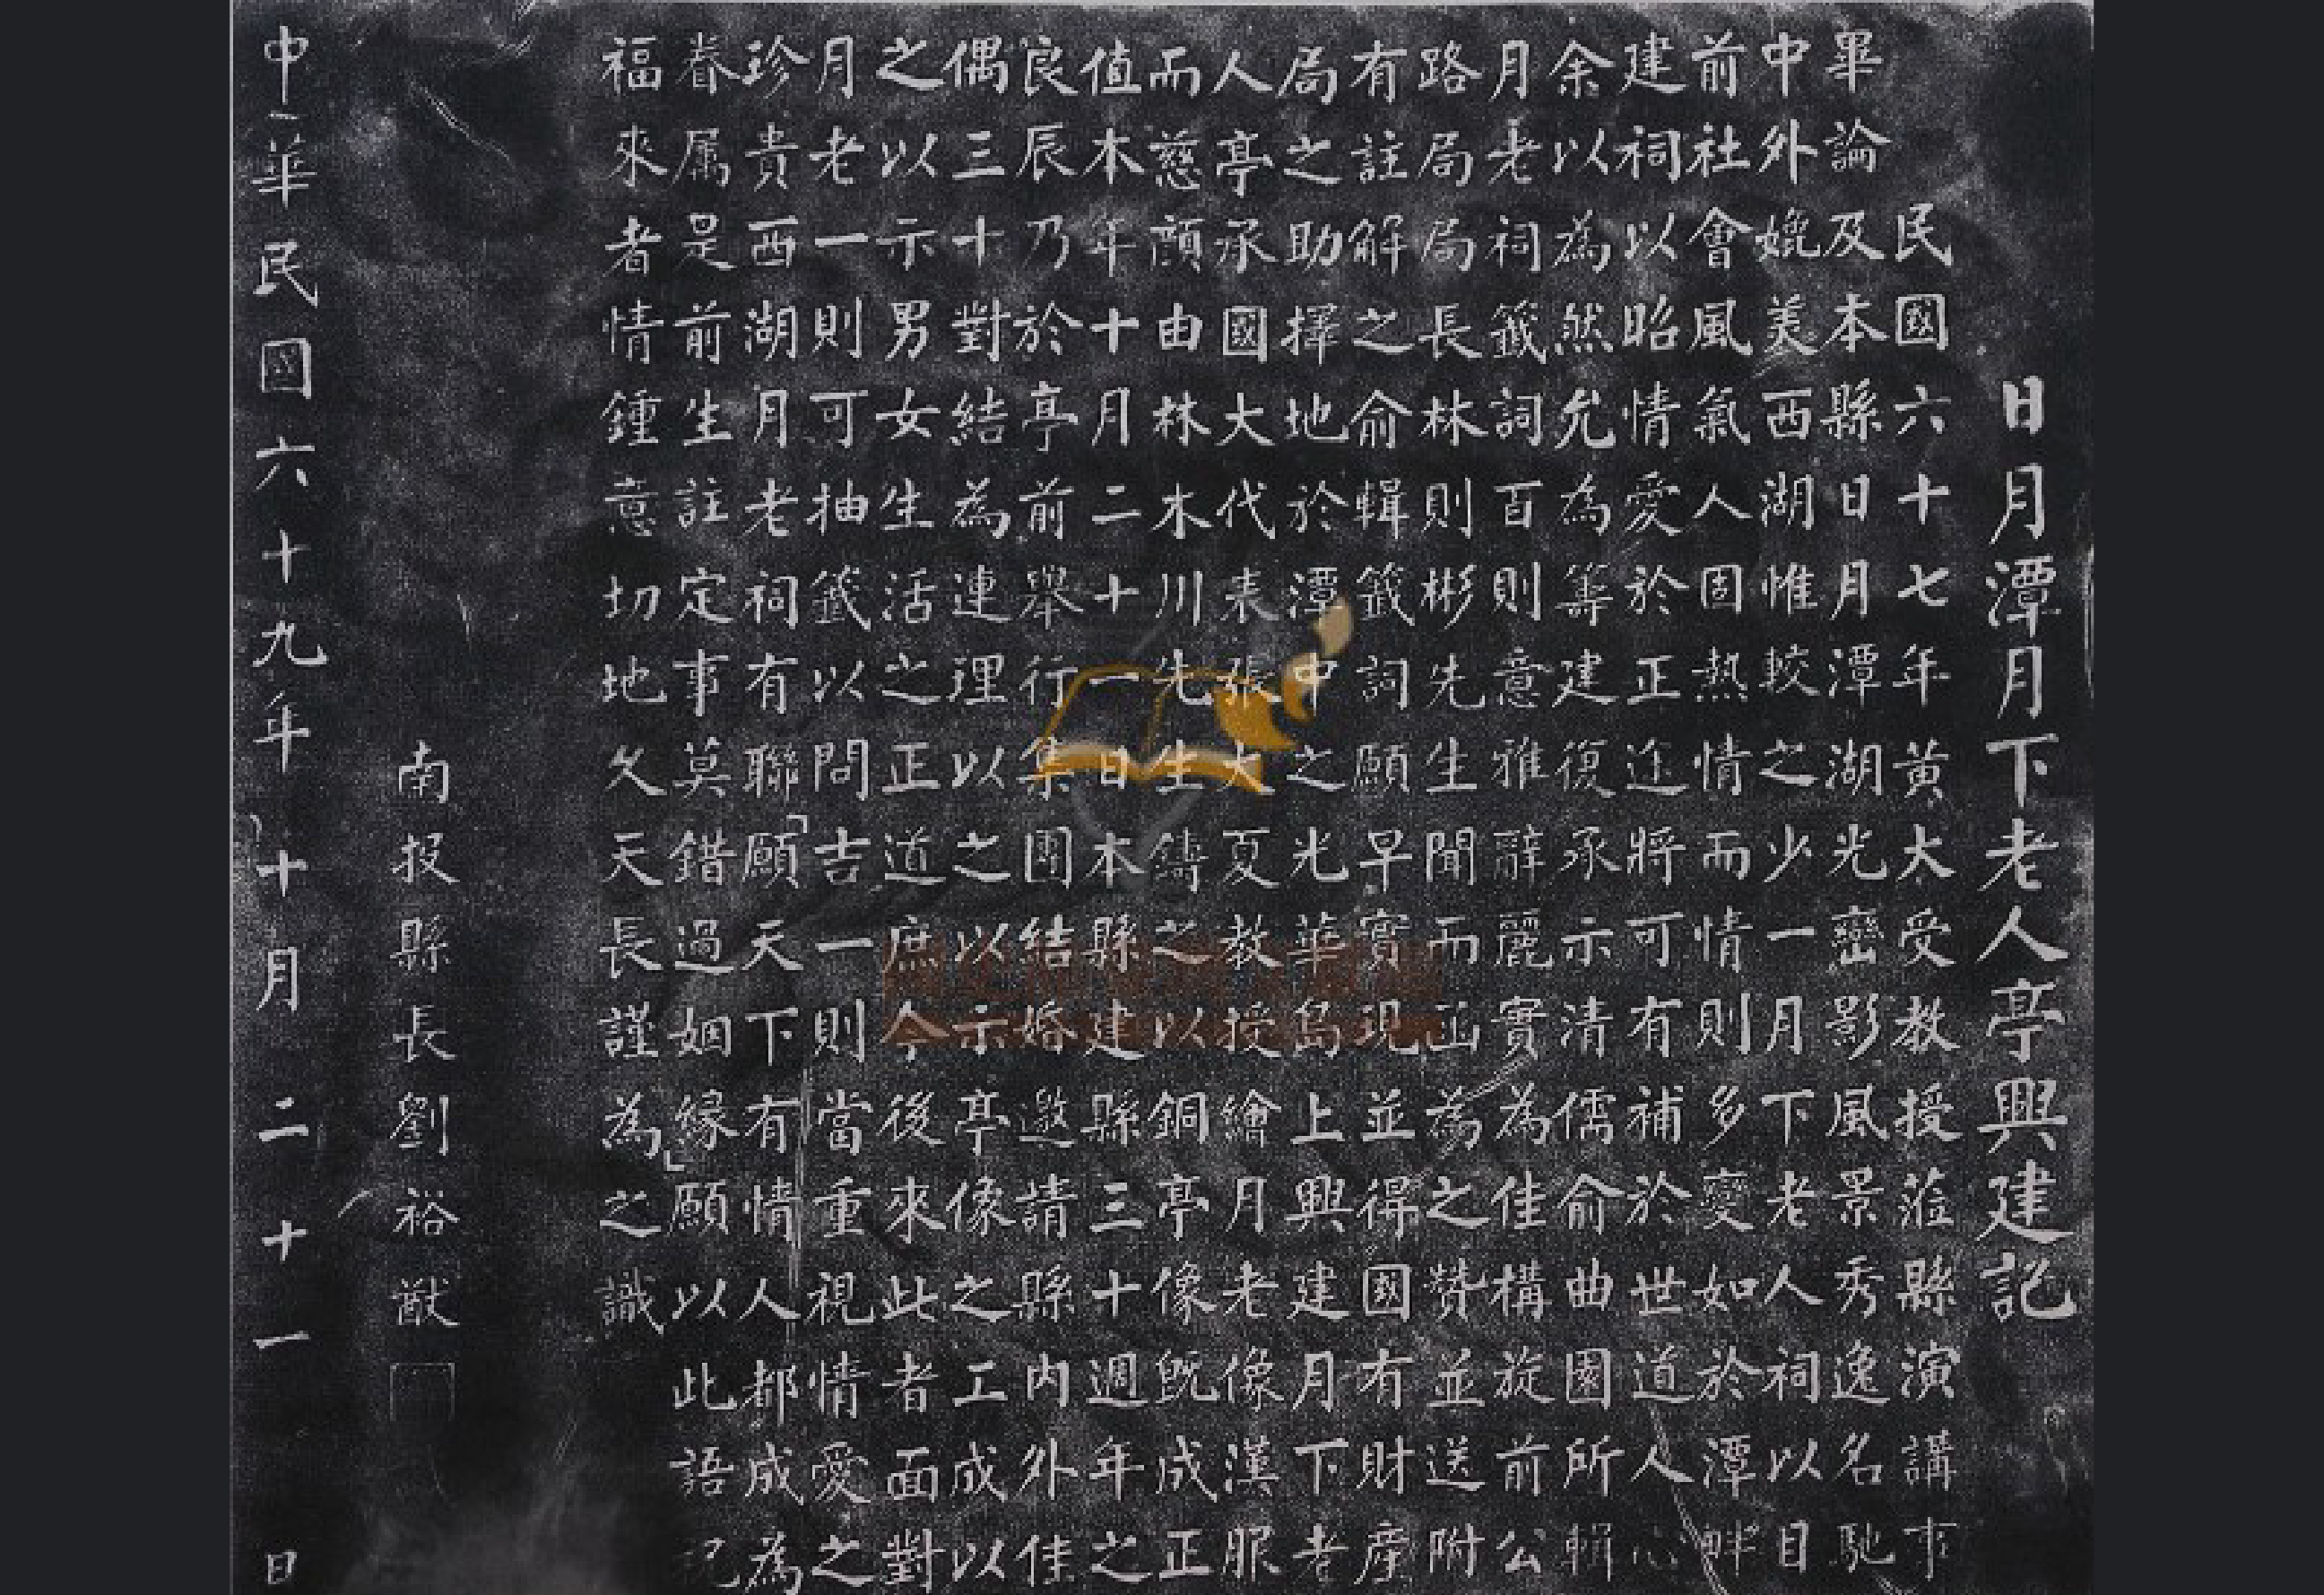 日月潭月下老人亭興建記
民國六十七年黃大受教授蒞縣演講事
畢論及本縣日月潭湖光巒影風景秀逸名馳
中外媲美西湖惟較之少一月下老人祠以目
前社會風氣人固熱情而情則多變如於潭畔
建祠以昭情愛於正途將可有補於世道人心
余以為然允為籌建復承示清儒俞曲園所輯
月老祠籤詞百則意雅辭麗實為佳構旋前公
路局局長林則彬先生聞而函為之贊並送附
有註解之俞輯籤詞願早實現並得國有財產
局之助擇地於潭中之光華島上興建月下老
人亭承國大代表張大夏教授繪月老像漢服
而慈顏由林木川先生鑄之以銅亭像既成正
值木年十月二十一日本縣建縣三十週年之
良辰乃於亭前舉行集團結婚邀請縣內外佳
偶三十對結為連理以之以示亭像之工成以
之以示男女生活之正道庶今後來此者面對
月老一則可抽籤以問吉一則當重視情愛之
珍貴西湖月老祠有聯「願天下有情人都成為
眷属是前生註定事莫錯過姻緣」願以此語祝
福來者情鍾意切地久天長謹為之識
南投縣長劉裕猷
中華民國六十九年十月二十一日